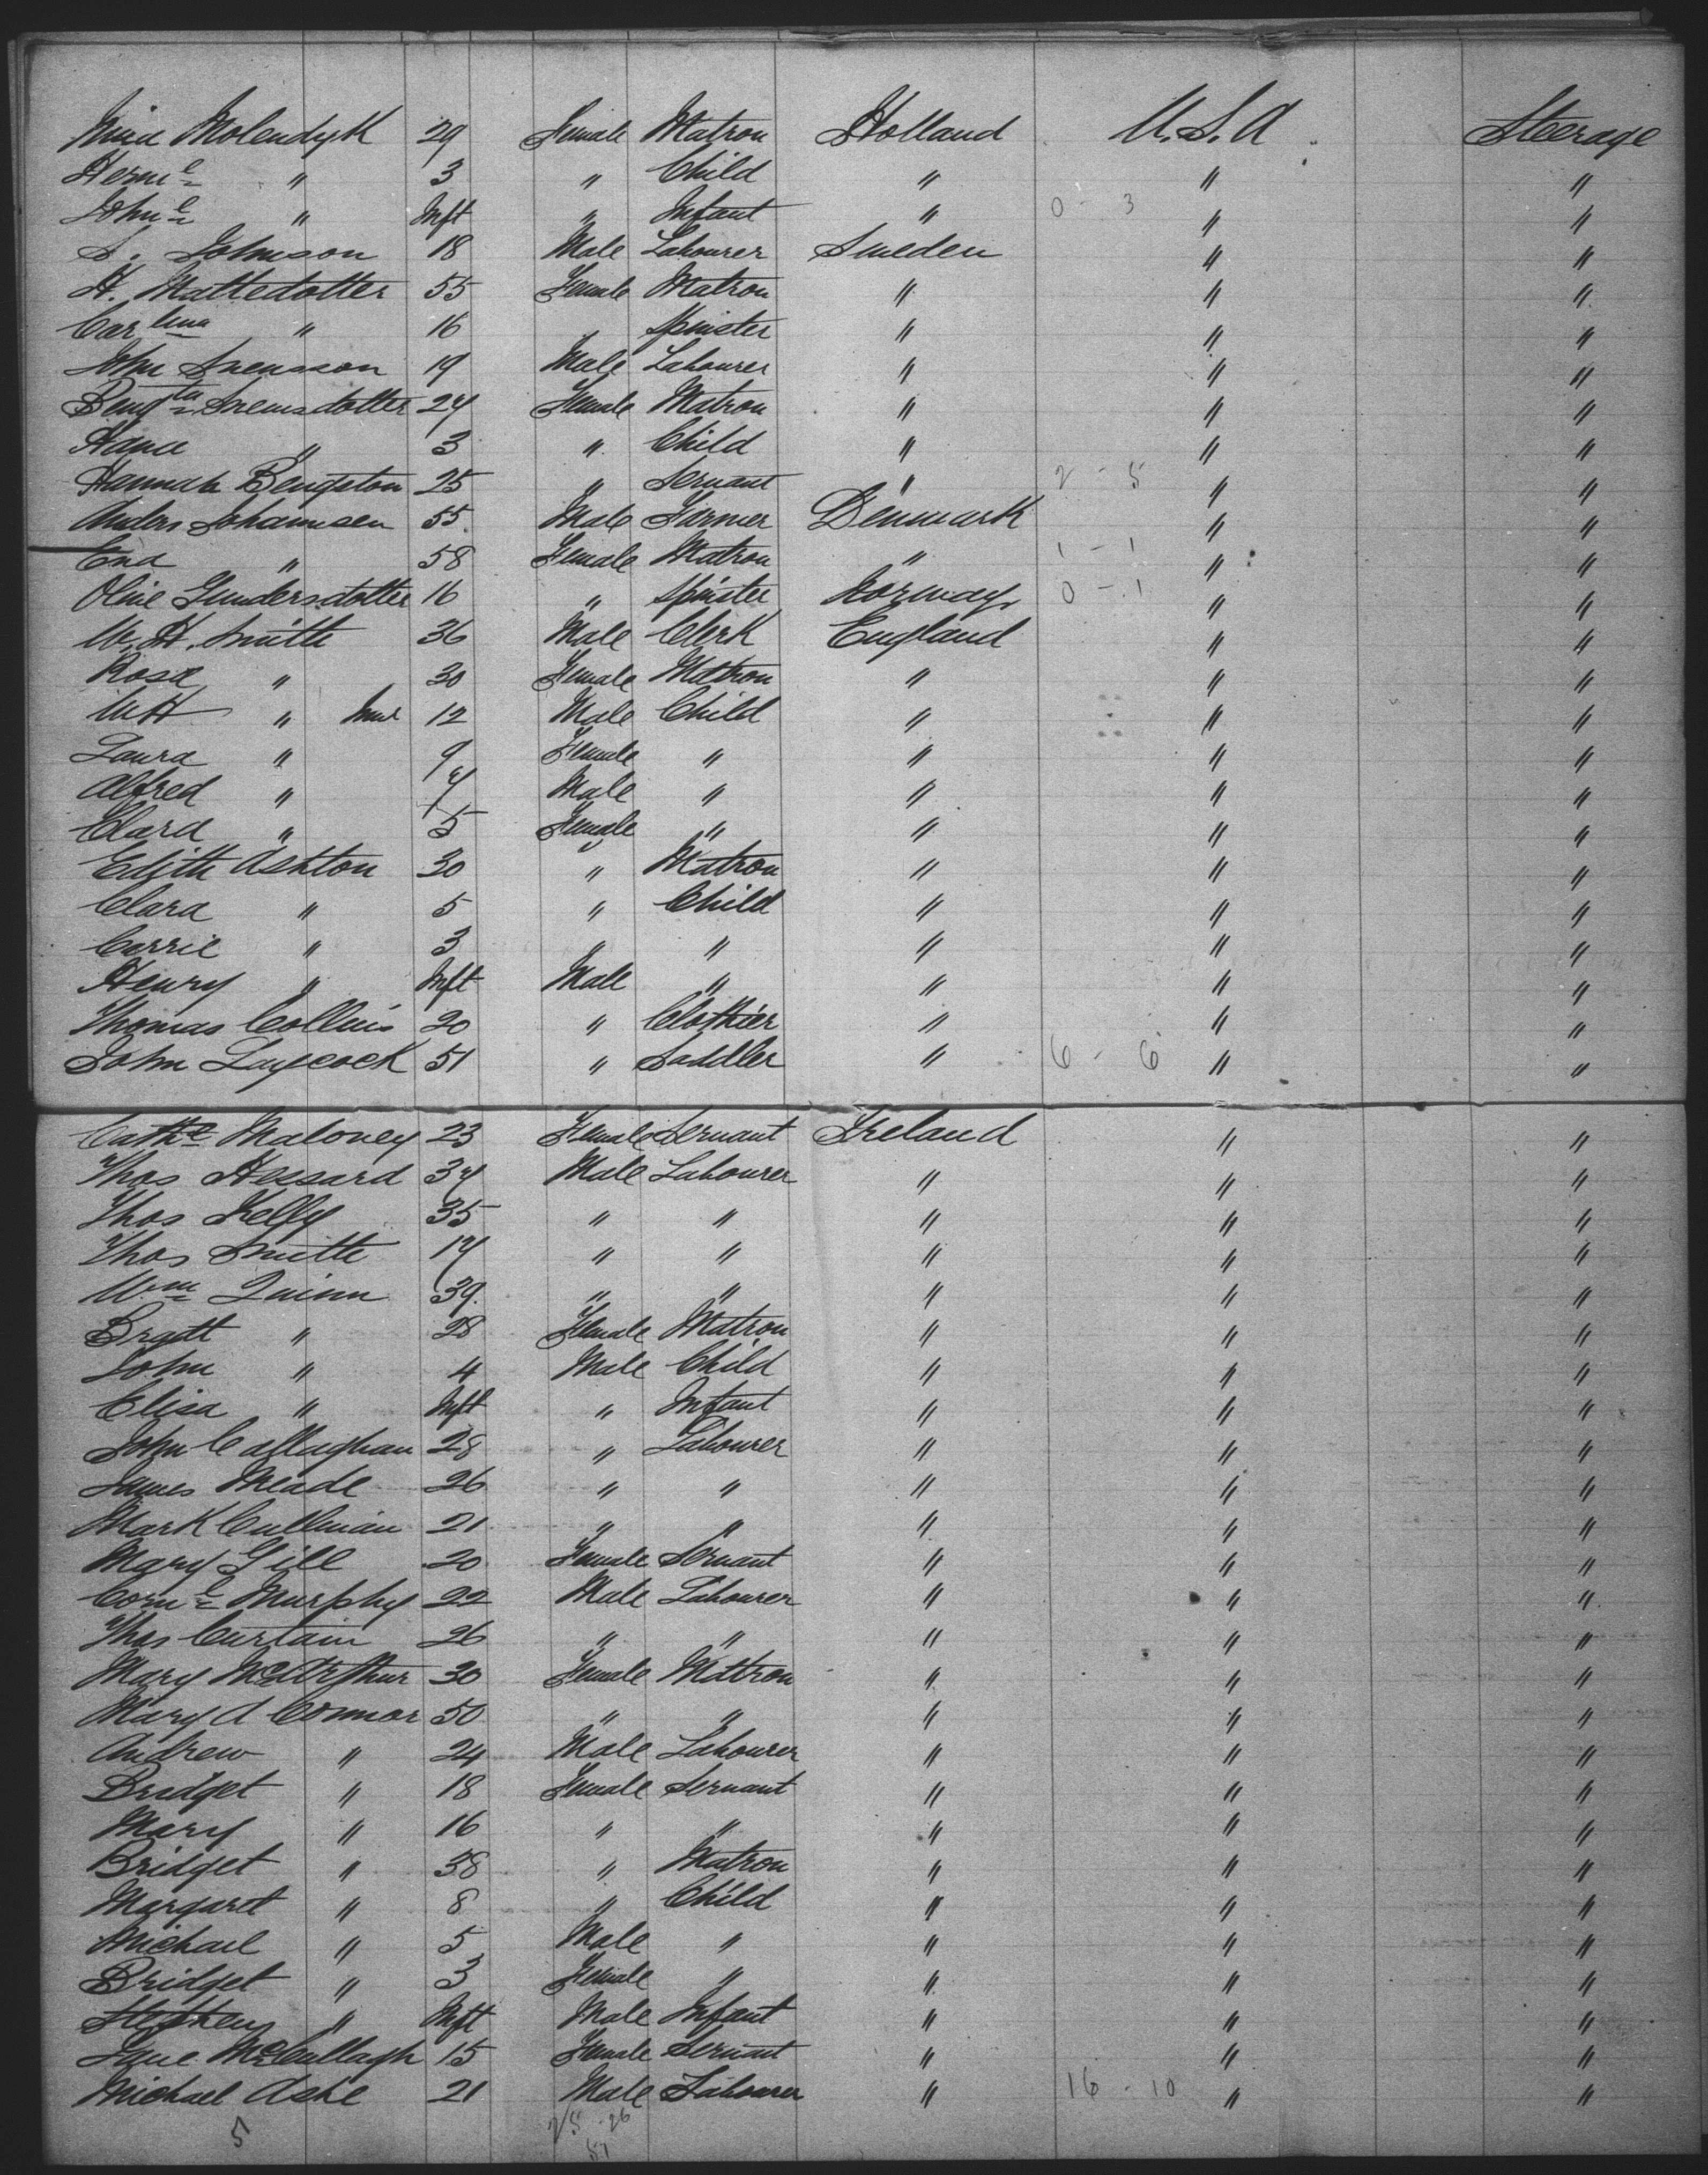 Nina Molendyk 29 Female Matron Holland U.S.A Steerage
Herme " 3 " Child " " "
Johne " Inft " Infant " 0 - 3 " "
S. Johnson 18 Male Labourer Sweden " "
H. Mattedotter 55 Female Matron " " "
Carlina " 16 " Spinster " " "
John Svensson 19 Male Labourer " " "
Bengta Svensdotter 24 Female Matron " " "
Hana " 3 " Child " " "
Hannah Bengston 25 " Servant " 2 - 5 " "
Anders Johannsen 55 Male Farmer Denmark " "
Ena " 58 Female Matron " 1 - 1 " "
Oline Gundersdotter 16 " Spinster Norway 0 - 1 " "
W. H. Smith 36 Male Clerk England " "
Rose " 30 Female Matron " " "
W H " 12 Male Child " " "
Laura " 9 Female " " " "
Alfred " 7 Male " " " "
Clara " 5 Female " " " "
Edith Ashton 30 " Matron " " "
Clara " 5 " Child " " "
Carrie " 3 " " " " "
Henry " Inft Male " " " "
Thomas Collins 20 " Clothier " " "
John Laycock 51 " Saddler " 6 - 6 " "
Cathe Maloney 23 Female Servant Ireland " "
Thos Hessard 34 Male Labourer " " "
Thos Kelly 35 " " " " "
Thos Smith 17 " " " " "
Wm Quinn 39 " " " " "
Bragt " 28 Female Matron " " "
John " 4 Male Child " " "
Eliza " Inft " Infant " " "
John Callaghan 28 " Labourer " " "
James Meade 26 " " " " "
Mark Cullinan 21 " " " " "
Mary Gill 20 Female Servant " " "
Corne Murphy 22 Male Labourer " " "
Thos Curtain 26 " " " " "
Mary McArthur 30 Female Matron " " "
Mary A Connor 50 " " " " "
Andrew " 24 Male Labourer " " "
Bridget " 18 Female Servant " " "
Mary " 16 " " " " "
Bridget " 38 " Matron " " "
Margaret " 8 " Child " " "
Michael " 5 Male " " " "
Bridget " 3 Female " " " "
Stephen " Inft Male Infant " " "
Jane McCullagh 15 Female Servant " " "
Michael Ashe 21 Male Labourer " 16 - 10 " "
5 25 - 26
51